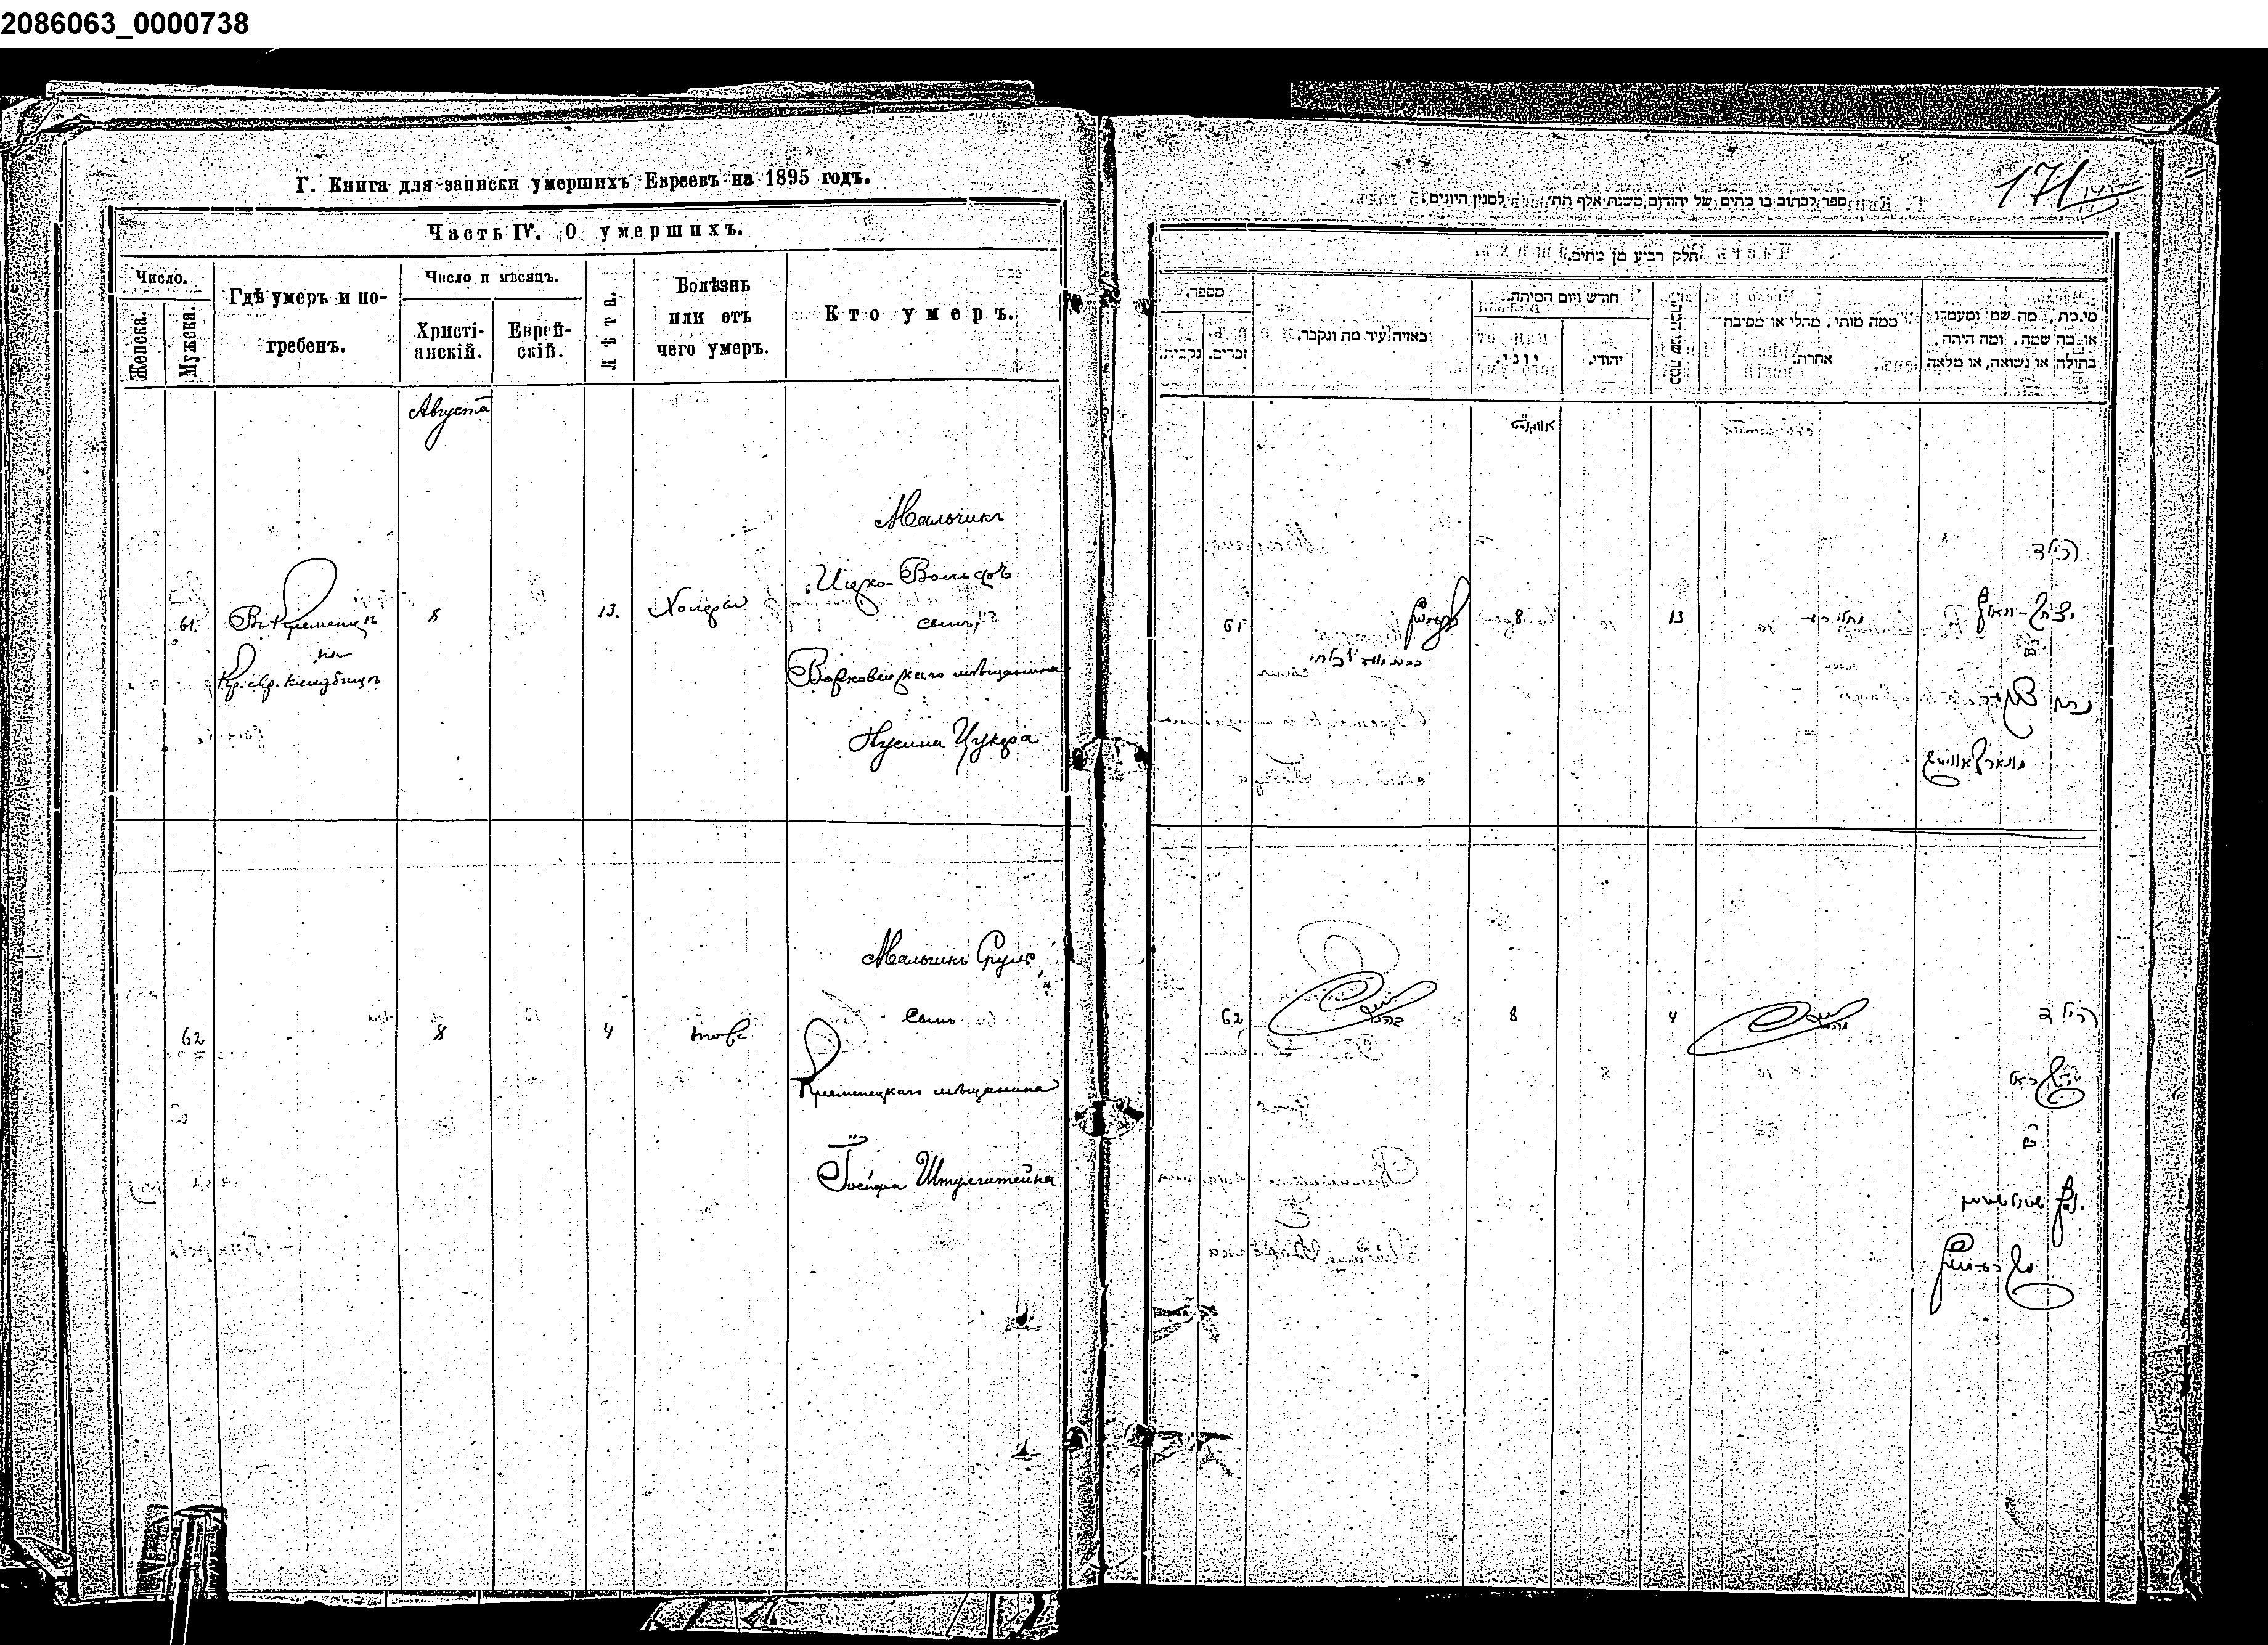 2086063_0000738
Г. Книга для записки умершихъ Евреевъ на 1895 годъ.
Часть IV. О умершихъ.
Число.
Женска.
Мужска.
Гдѣ умеръ и по-
гребенъ.
Число и мѣсяцъ.
Христі-
анскій.
Еврей-
скій.
Лѣта.
Болѣзнь
или отъ
чего умеръ.
Кто умеръ.
Августа
61.
Въ Кременцѣ
на
Кр. евр. кладбищѣ
8
13.
Холера
Мальчикъ
Ицко-Вольфъ
сынъ
Варковецкаго мѣщанина
Нусина Цукера
62
8
4
тоже
Мальчикъ Сруль,
сынъ
Кременецкаго мѣщанина
Іосифа Штульштейна
171
ספר לכתוב בו מתים של יהודים משנת אלף תת למנין היונים:
חלק רביע מן מתים.
מספר.
נקבית.
זכרים.
באיזה עיר מת ונקבר.
חודש ויום המיתה.
יוני.
יהודי.
כמה שני המת
ממה מותו, מחלי או מסיבה
אחרת.
מי מת, מה שמו ומעמדו
או מה שמה, ומה היתה,
בתולה, או נשואה, או מלאה
אווגוסט
61
8
13
הילד
יצחק-וואלף
בן
62
8
4
הילד
ישראל
בן